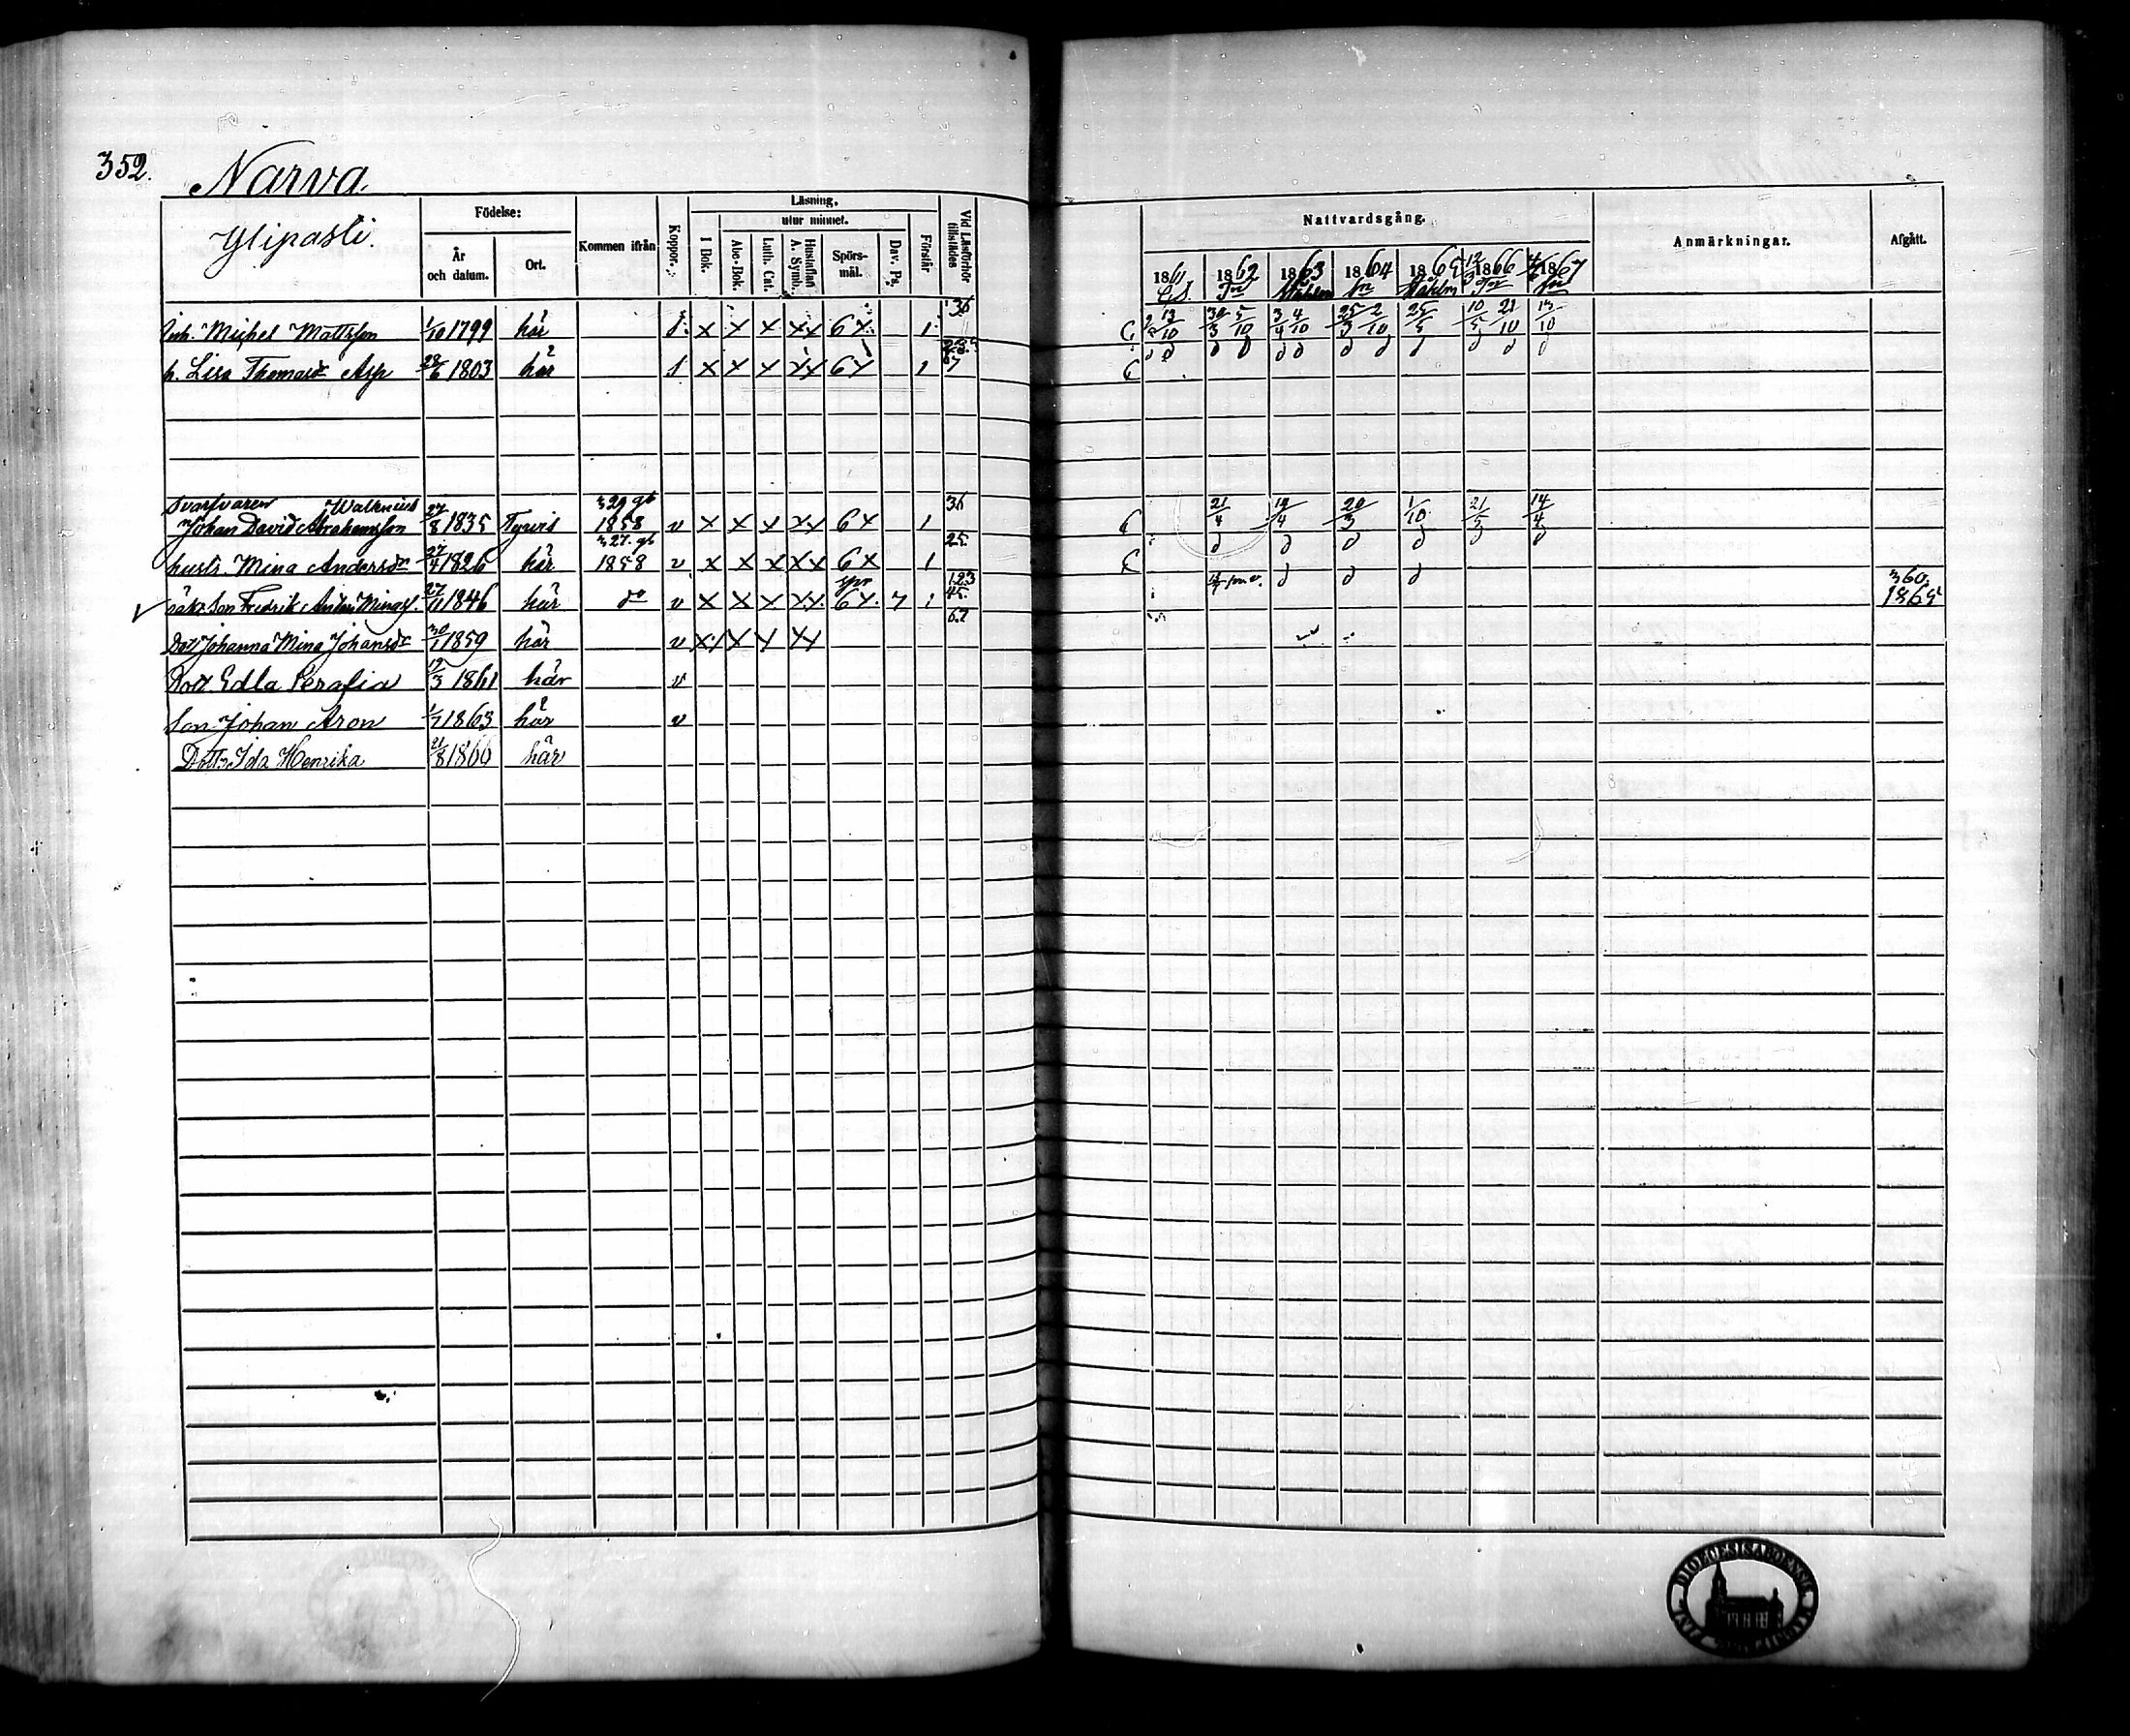 352.
Narva
Ylipasti.
Födelse:
År och datum.
Ort.
Kommen ifrån
Koppor.
Läsning.
I Bok.
utur minnet.
Abc-Bok.
Luth. Cat.
Hustaflan A. Symb.
Spörs-mål.
Dav. Ps.
Förstår
Vid Läsförhör tillstädes
Nattvardsgång.
1861 1862 1863 1864 1865 1866 1867
Anmärkningar.
Afgått.
Inh. Michel Mattsson 1/10 1799 här x x x xx 6x 1 36
C 13/10 30/3 5/10 3/4 4/10 25/3 2/10 25/5 10/5 21/10 13/10
h. Lisa Thomasdr Asp 28/6 1803 här 1 x x x xx 6x 1 7
C
Svarfvaren Walenius
Johan David Abrahamsson 27/8 1835 Tyrvis 329 gb 1858 v x x x xx 6x 1 36
C 21/4 19/4 20/3 1/10 21/5 14/4
hustr. Mina Andersdr 27/4 1826 här 327. gb 1858 v x x x xx 6x 1 25.
C
oäkt. Son Fredrik Anton Minas. 27/11 1846 här do v x x x xx. 6x. 7 1 123 45.
360. 1865
Dott Johanna Mina Johansdr 30/1 1859 här v x x x xx 62
Dott. Edla Serafia 19/3 1861 här v
Son Johan Aron 1/7 1863 här v
Dottr. Ida Henrika 21/8 1866 här
DIOECESIS ABOENSIS